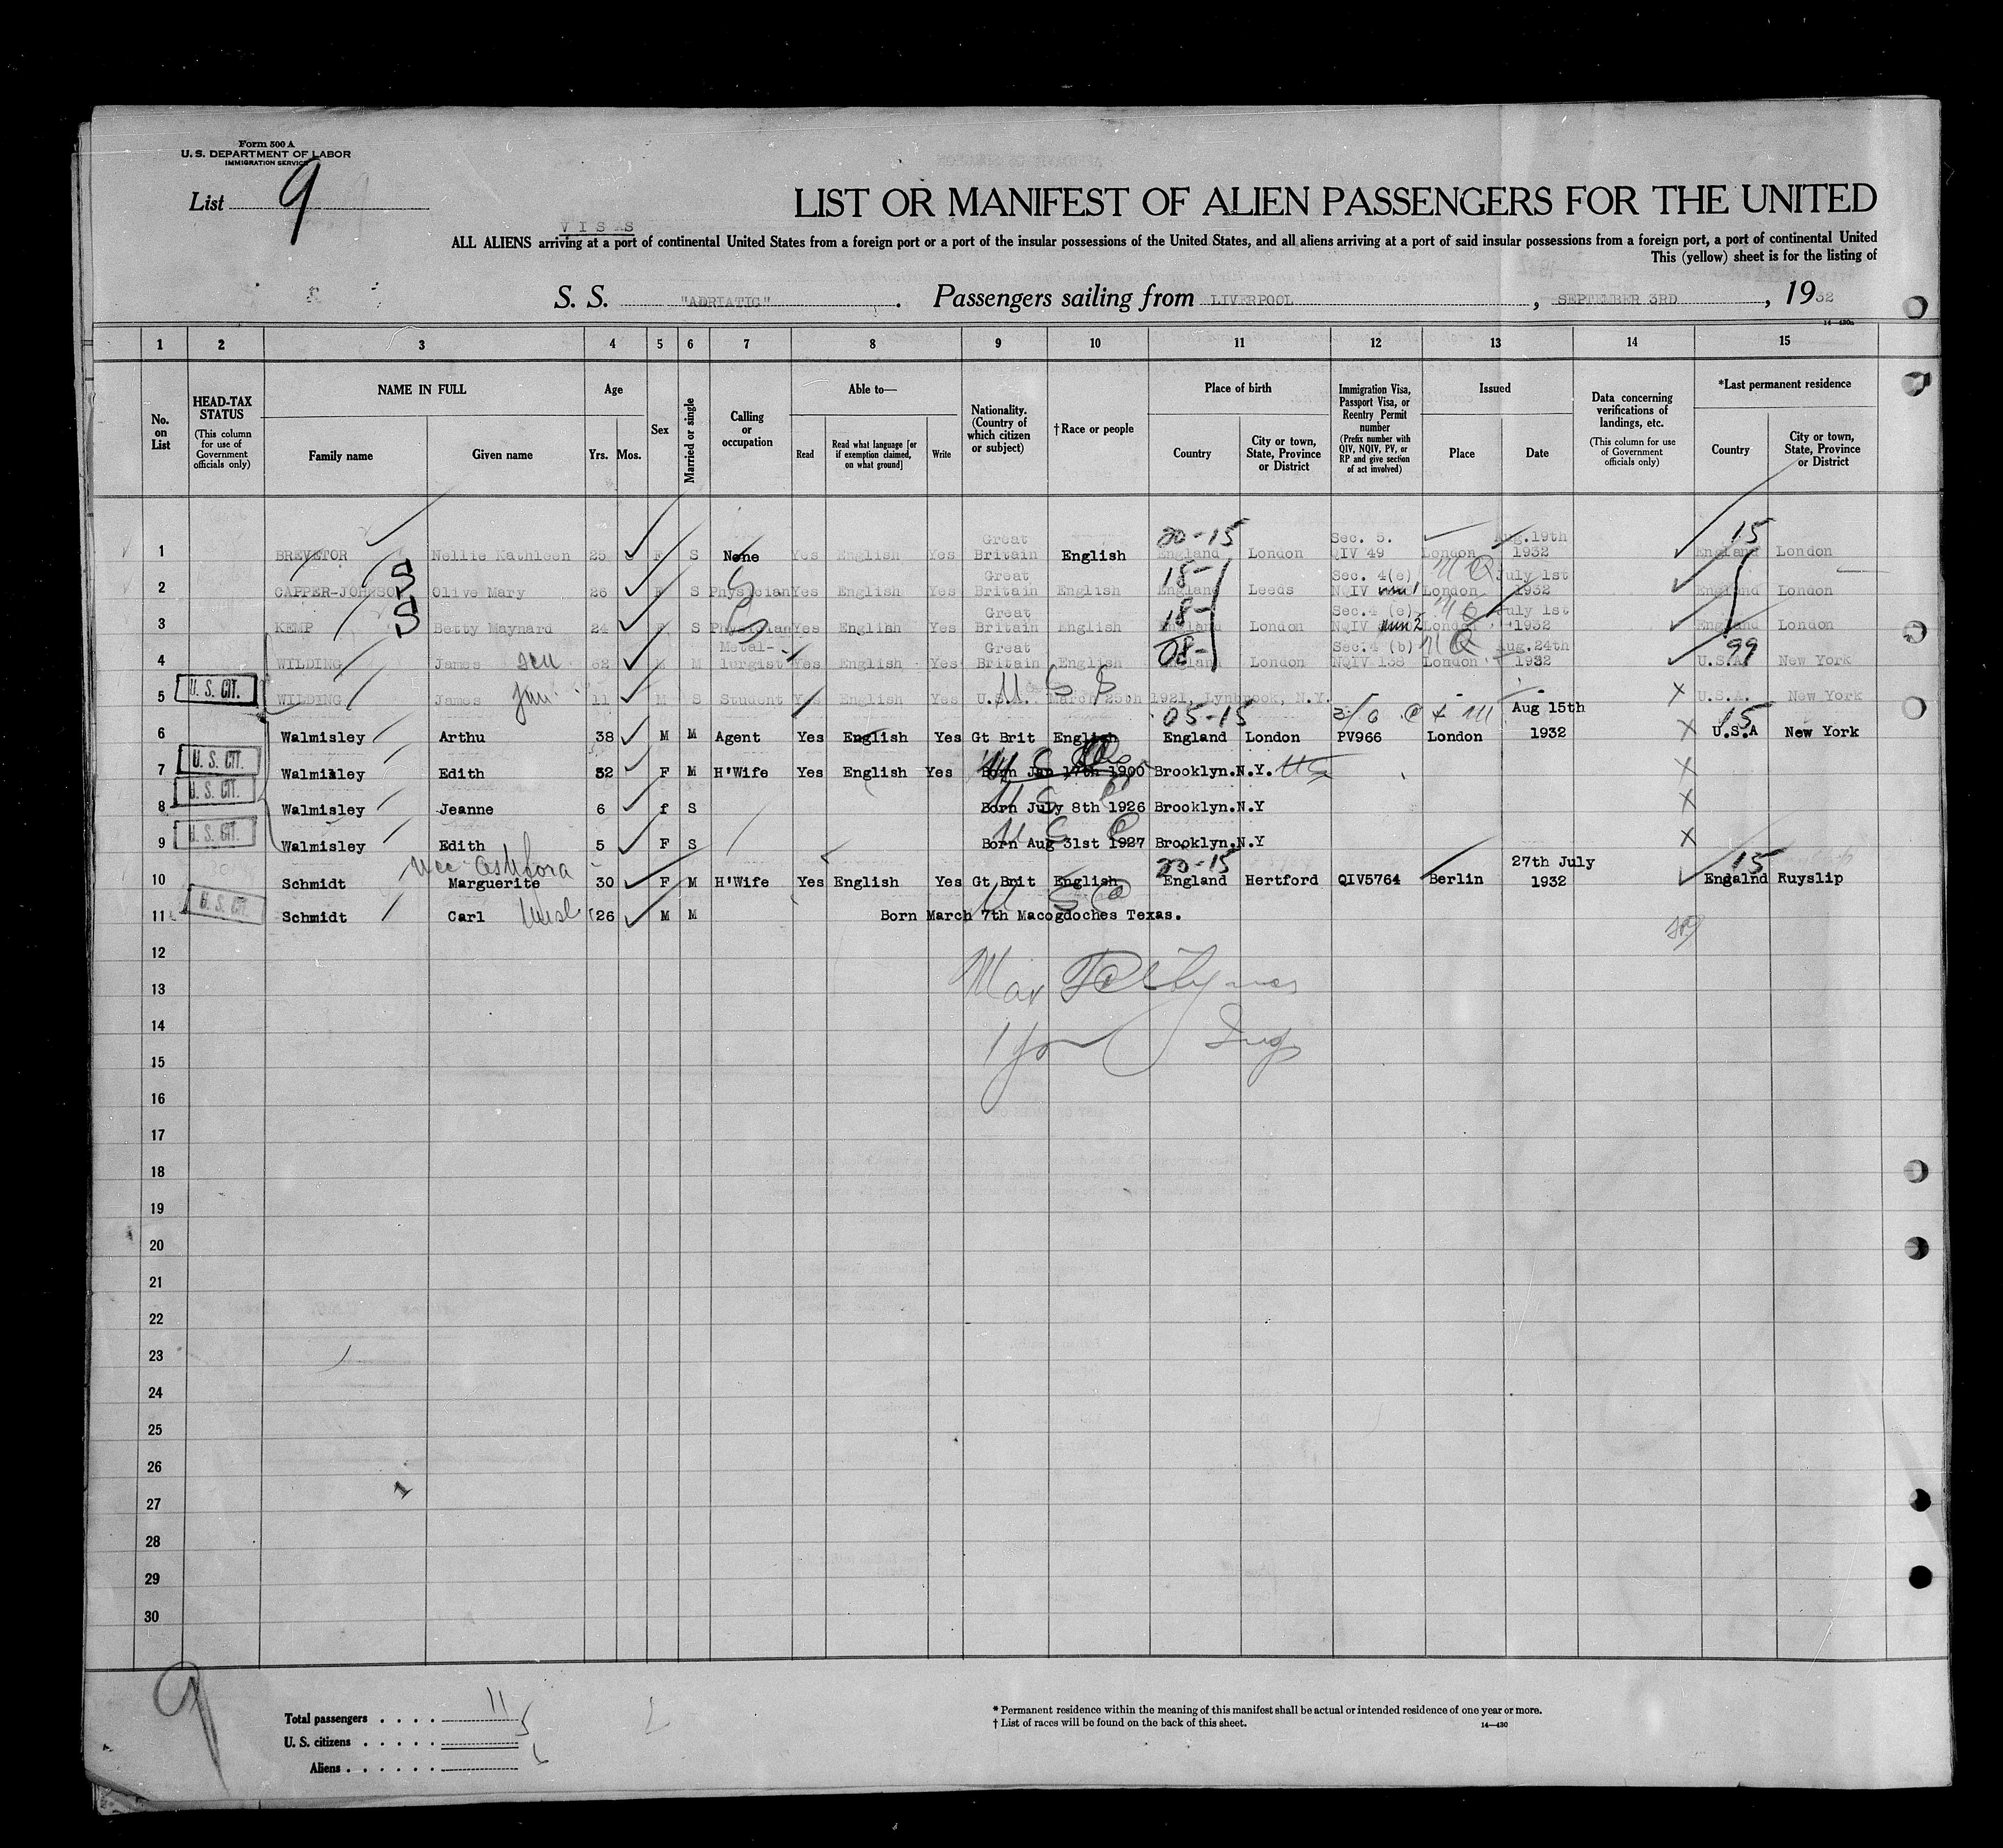 Form 500 A
U. S. DEPARTMENT OF LABOR
IMMIGRATION SERVICE
List 9
LIST OR MANIFEST OF ALIEN PASSENGERS FOR THE UNITED
VISAS
ALL ALIENS arriving at a port of continental United States from a foreign port or a port of the insular possessions of the United States, and all aliens arriving at a port of said insular possessions from a foreign port, a port of continental United
This (yellow) sheet is for the listing of
S. S. "ADRIATIC". Passengers sailing from LIVERPOOL, SEPTEMBER 3RD, 1932
14—430a
1 2 3 4 5 6 7 8 9 10 11 12 13 14 15
No. on List
HEAD-TAX STATUS (This column for use of Government officials only)
NAME IN FULL
Family name Given name
Age
Yrs. Mos.
Sex
Married or single
Calling or occupation
Able to—
Read
Read what language [or if exemption claimed, on what ground]
Write
Nationality. (Country of which citizen or subject)
†Race or people
Place of birth
Country
City or town, State, Province or District
Immigration Visa, Passport Visa, or Reentry Permit number (Prefix number with QIV, NQIV, PV, or RP and give section of act involved)
Issued
Place Date
Data concerning verifications of landings, etc. (This column for use of Government officials only)
*Last permanent residence
Country
City or town, State, Province or District
20-15 15
Great Sec. 5. Aug.19th
1 BREVETOR Nellie Kathleen 25 F S None Yes English Yes Britain English England London QIV 49 London 1932 England London
18-
Great Sec. 4(e) NQ July 1st
2 CAPPER-JOHNSON Olive Mary 26 F S Physician Yes English Yes Britain English England Leeds NQIV 1 London 1932 England London
18-
Great Sec.4 (e) NQ July 1st
3 KEMP Betty Maynard 24 F S Physician Yes English Yes Britain English England London NQIV 2 London 1932 England London
08- 99
Metal- Great Sec.4 (b) NQ Aug.24th
4 WILDING James sen 52 M M lurgist Yes English Yes Britain English England London NQIV 138 London 1932 U.S.A. New York
U. S. CIT. 5 WILDING James jun. 11 M S Student Yes English Yes U.S.A. March 25th 1921, Lynbrook, N.Y. U.S.A. New York
05-15 Aug 15th 15
6 Walmisley Arthu 38 M M Agent Yes English Yes Gt Brit English England London PV966 London 1932 U.S.A New York
U. S. CIT. 7 Walmisley Edith 32 F M H'Wife Yes English Yes Born Jan 17th 1900 Brooklyn.N.Y.
U. S. CIT. 8 Walmisley Jeanne 6 f S Born July 8th 1926 Brooklyn.N.Y
U. S. CIT. 9 Walmisley Edith 5 F S Born Aug 31st 1927 Brooklyn.N.Y
nee Ashford 20-15 27th July 15
10 Schmidt Marguerite 30 F M H'Wife Yes English Yes Gt Brit English England Hertford QIV5764 Berlin 1932 Engalnd Ruyslip
U. S. CIT. 11 Schmidt Carl 26 M M Born March 7th Macogdoches Texas.
12
13
14
15
16
17
18
19
20
21
22
23
24
25
26
27
28
29
30
9
Total passengers . . . . 11
U. S. citizens . . . . . 5
Aliens . . . . . . 6
* Permanent residence within the meaning of this manifest shall be actual or intended residence of one year or more.
† List of races will be found on the back of this sheet. 14—430